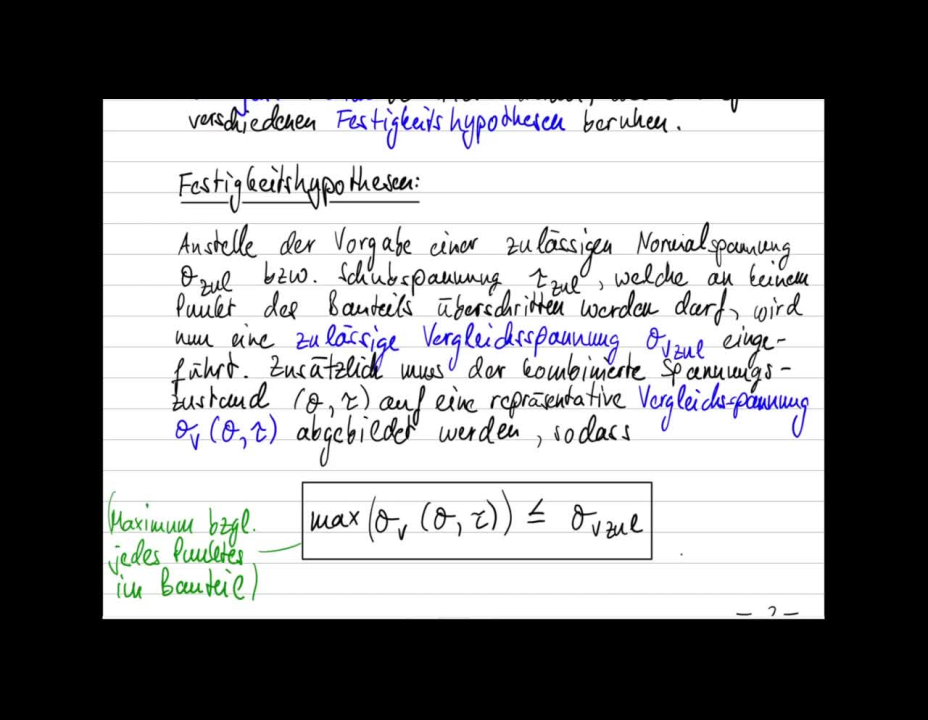 verschiedenen Festigkeitshypothesen beruhen.
Festigkeitshypothesen:
Anstelle der Vorgabe einer zulässigen Normalspannung
σ_zul bzw. Schubspannung τ_zul, welche an keinem
Punkt des Bauteils überschritten werden darf, wird
nun eine zulässige Vergleichsspannung σ_vzul einge-
führt. Zusätzlich muss der kombinierte Spannungs-
zustand (σ, τ) auf eine repräsentative Vergleichsspannung
σ_v (σ, τ) abgebildet werden, sodass
max(σ_v (σ, τ)) ≤ σ_vzul
(Maximum bzgl.
jedes Punktes
im Bauteil)